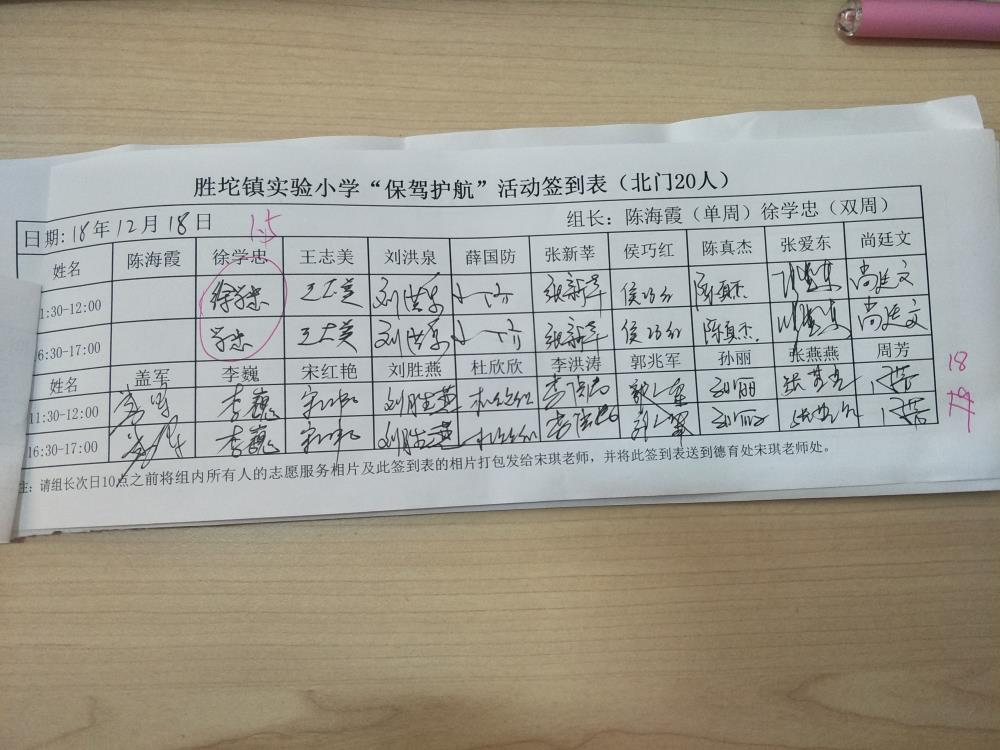 胜坨镇实验小学“保驾护航”活动签到表（北门20人）
日期: 18年12月18日 1.5 组长：陈海霞（单周）徐学忠（双周）
姓名 陈海霞 徐学忠 王志美 刘洪泉 薛国防 张新莘 侯巧红 陈真杰 张爱东 尚廷文
1:30-12:00 徐学忠 王志美 刘洪泉 张新莘 侯巧红 陈真杰 尚廷文
6:30-17:00 学忠 王志美 刘洪泉 张新莘 侯巧红 陈真杰 尚廷文
姓名 盖军 李巍 宋红艳 刘胜燕 杜欣欣 李洪涛 郭兆军 孙丽 张燕燕 周芳 18
11:30-12:00 李巍 刘胜燕 孙丽
16:30-17:00 李巍 刘胜燕 孙丽
注：请组长次日10点之前将组内所有人的志愿服务相片及此签到表的相片打包发给宋琪老师，并将此签到表送到德育处宋琪老师处。